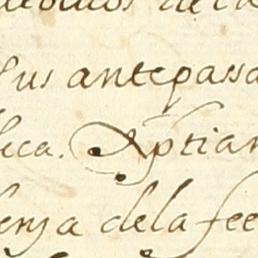 sus antepassa
lica. Xptian
enza dela fee